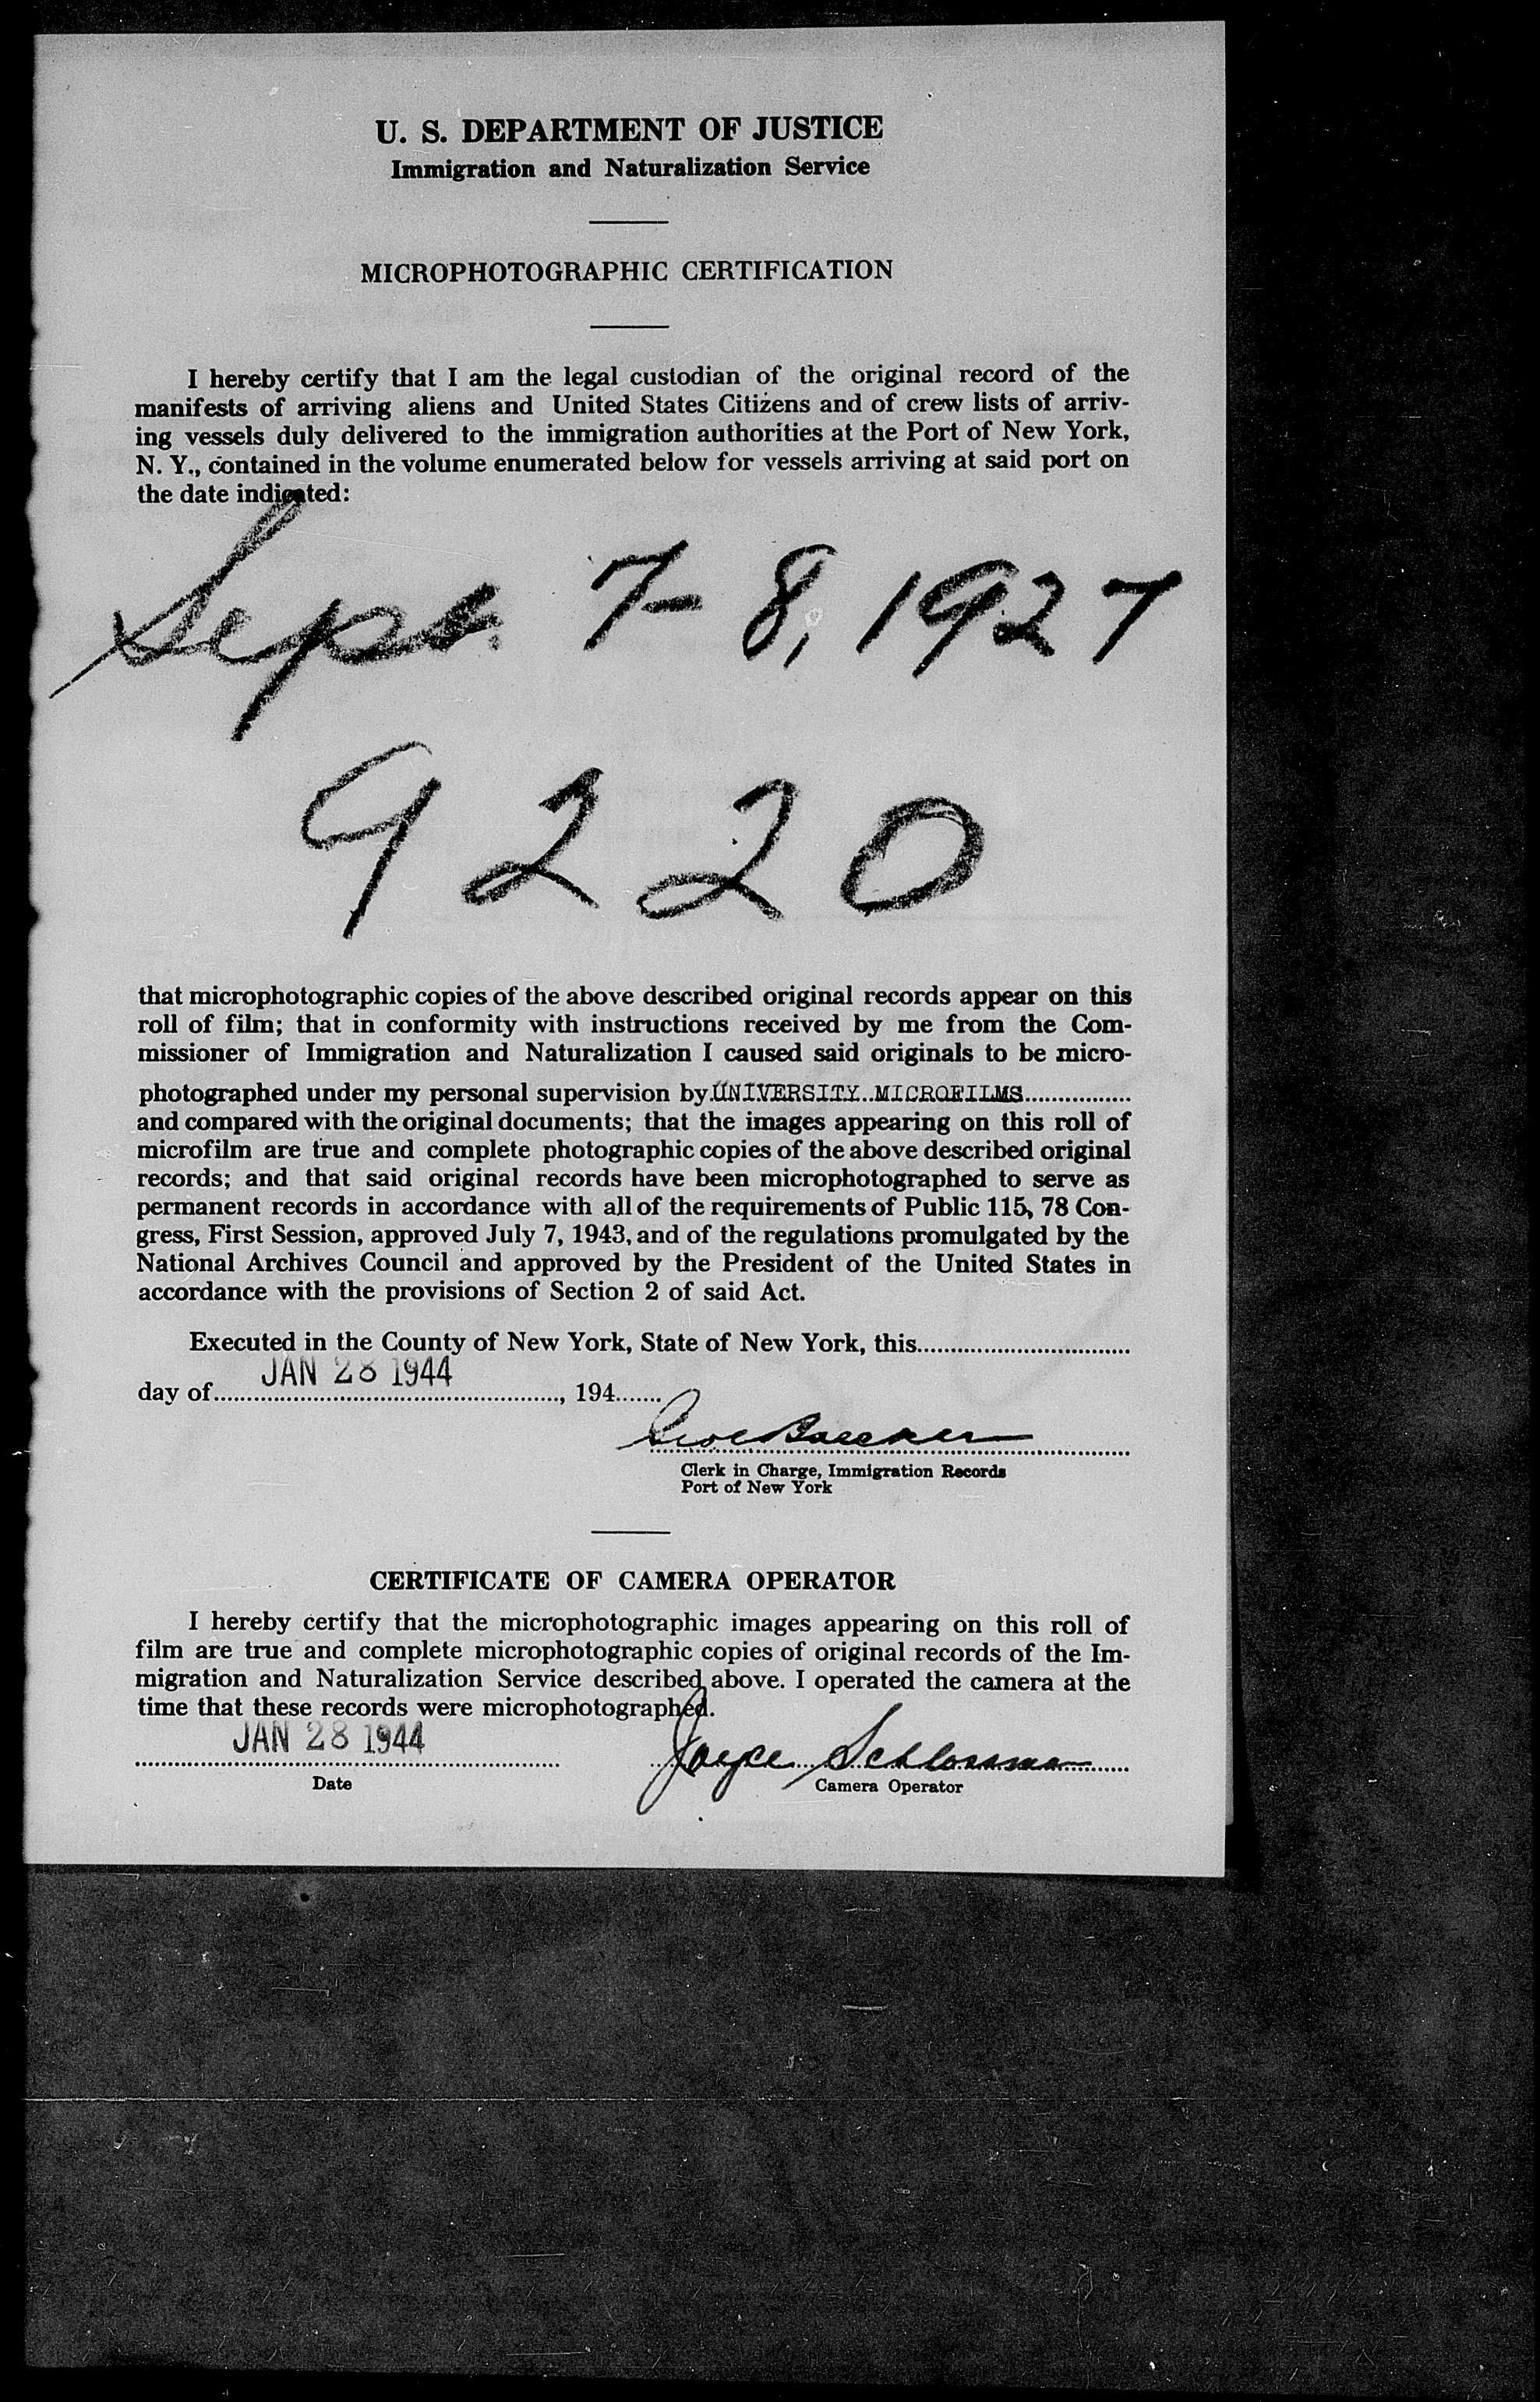 U. S. DEPARTMENT OF JUSTICE
Immigration and Naturalization Service
MICROPHOTOGRAPHIC CERTIFICATION
I hereby certify that I am the legal custodian of the original record of the
manifests of arriving aliens and United States Citizens and of crew lists of arriv-
ing vessels duly delivered to the immigration authorities at the Port of New York,
N. Y., contained in the volume enumerated below for vessels arriving at said port on
the date indicated:
Sept. 7-8, 1927
9220
that microphotographic copies of the above described original records appear on this
roll of film; that in conformity with instructions received by me from the Com-
missioner of Immigration and Naturalization I caused said originals to be micro-
photographed under my personal supervision by UNIVERSITY MICROFILMS
and compared with the original documents; that the images appearing on this roll of
microfilm are true and complete photographic copies of the above described original
records; and that said original records have been microphotographed to serve as
permanent records in accordance with all of the requirements of Public 115, 78 Con-
gress, First Session, approved July 7, 1943, and of the regulations promulgated by the
National Archives Council and approved by the President of the United States in
accordance with the provisions of Section 2 of said Act.
Executed in the County of New York, State of New York, this
JAN 28 1944
day of, 194
Clerk in Charge, Immigration Records
Port of New York
CERTIFICATE OF CAMERA OPERATOR
I hereby certify that the microphotographic images appearing on this roll of
film are true and complete microphotographic copies of original records of the Im-
migration and Naturalization Service described above. I operated the camera at the
time that these records were microphotographed.
JAN 28 1944
Joyce Schlossman
Date
Camera Operator